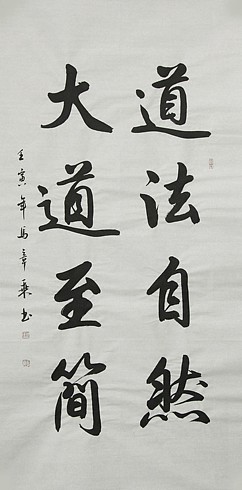 道法自然
大道至简
壬寅年马章乘书